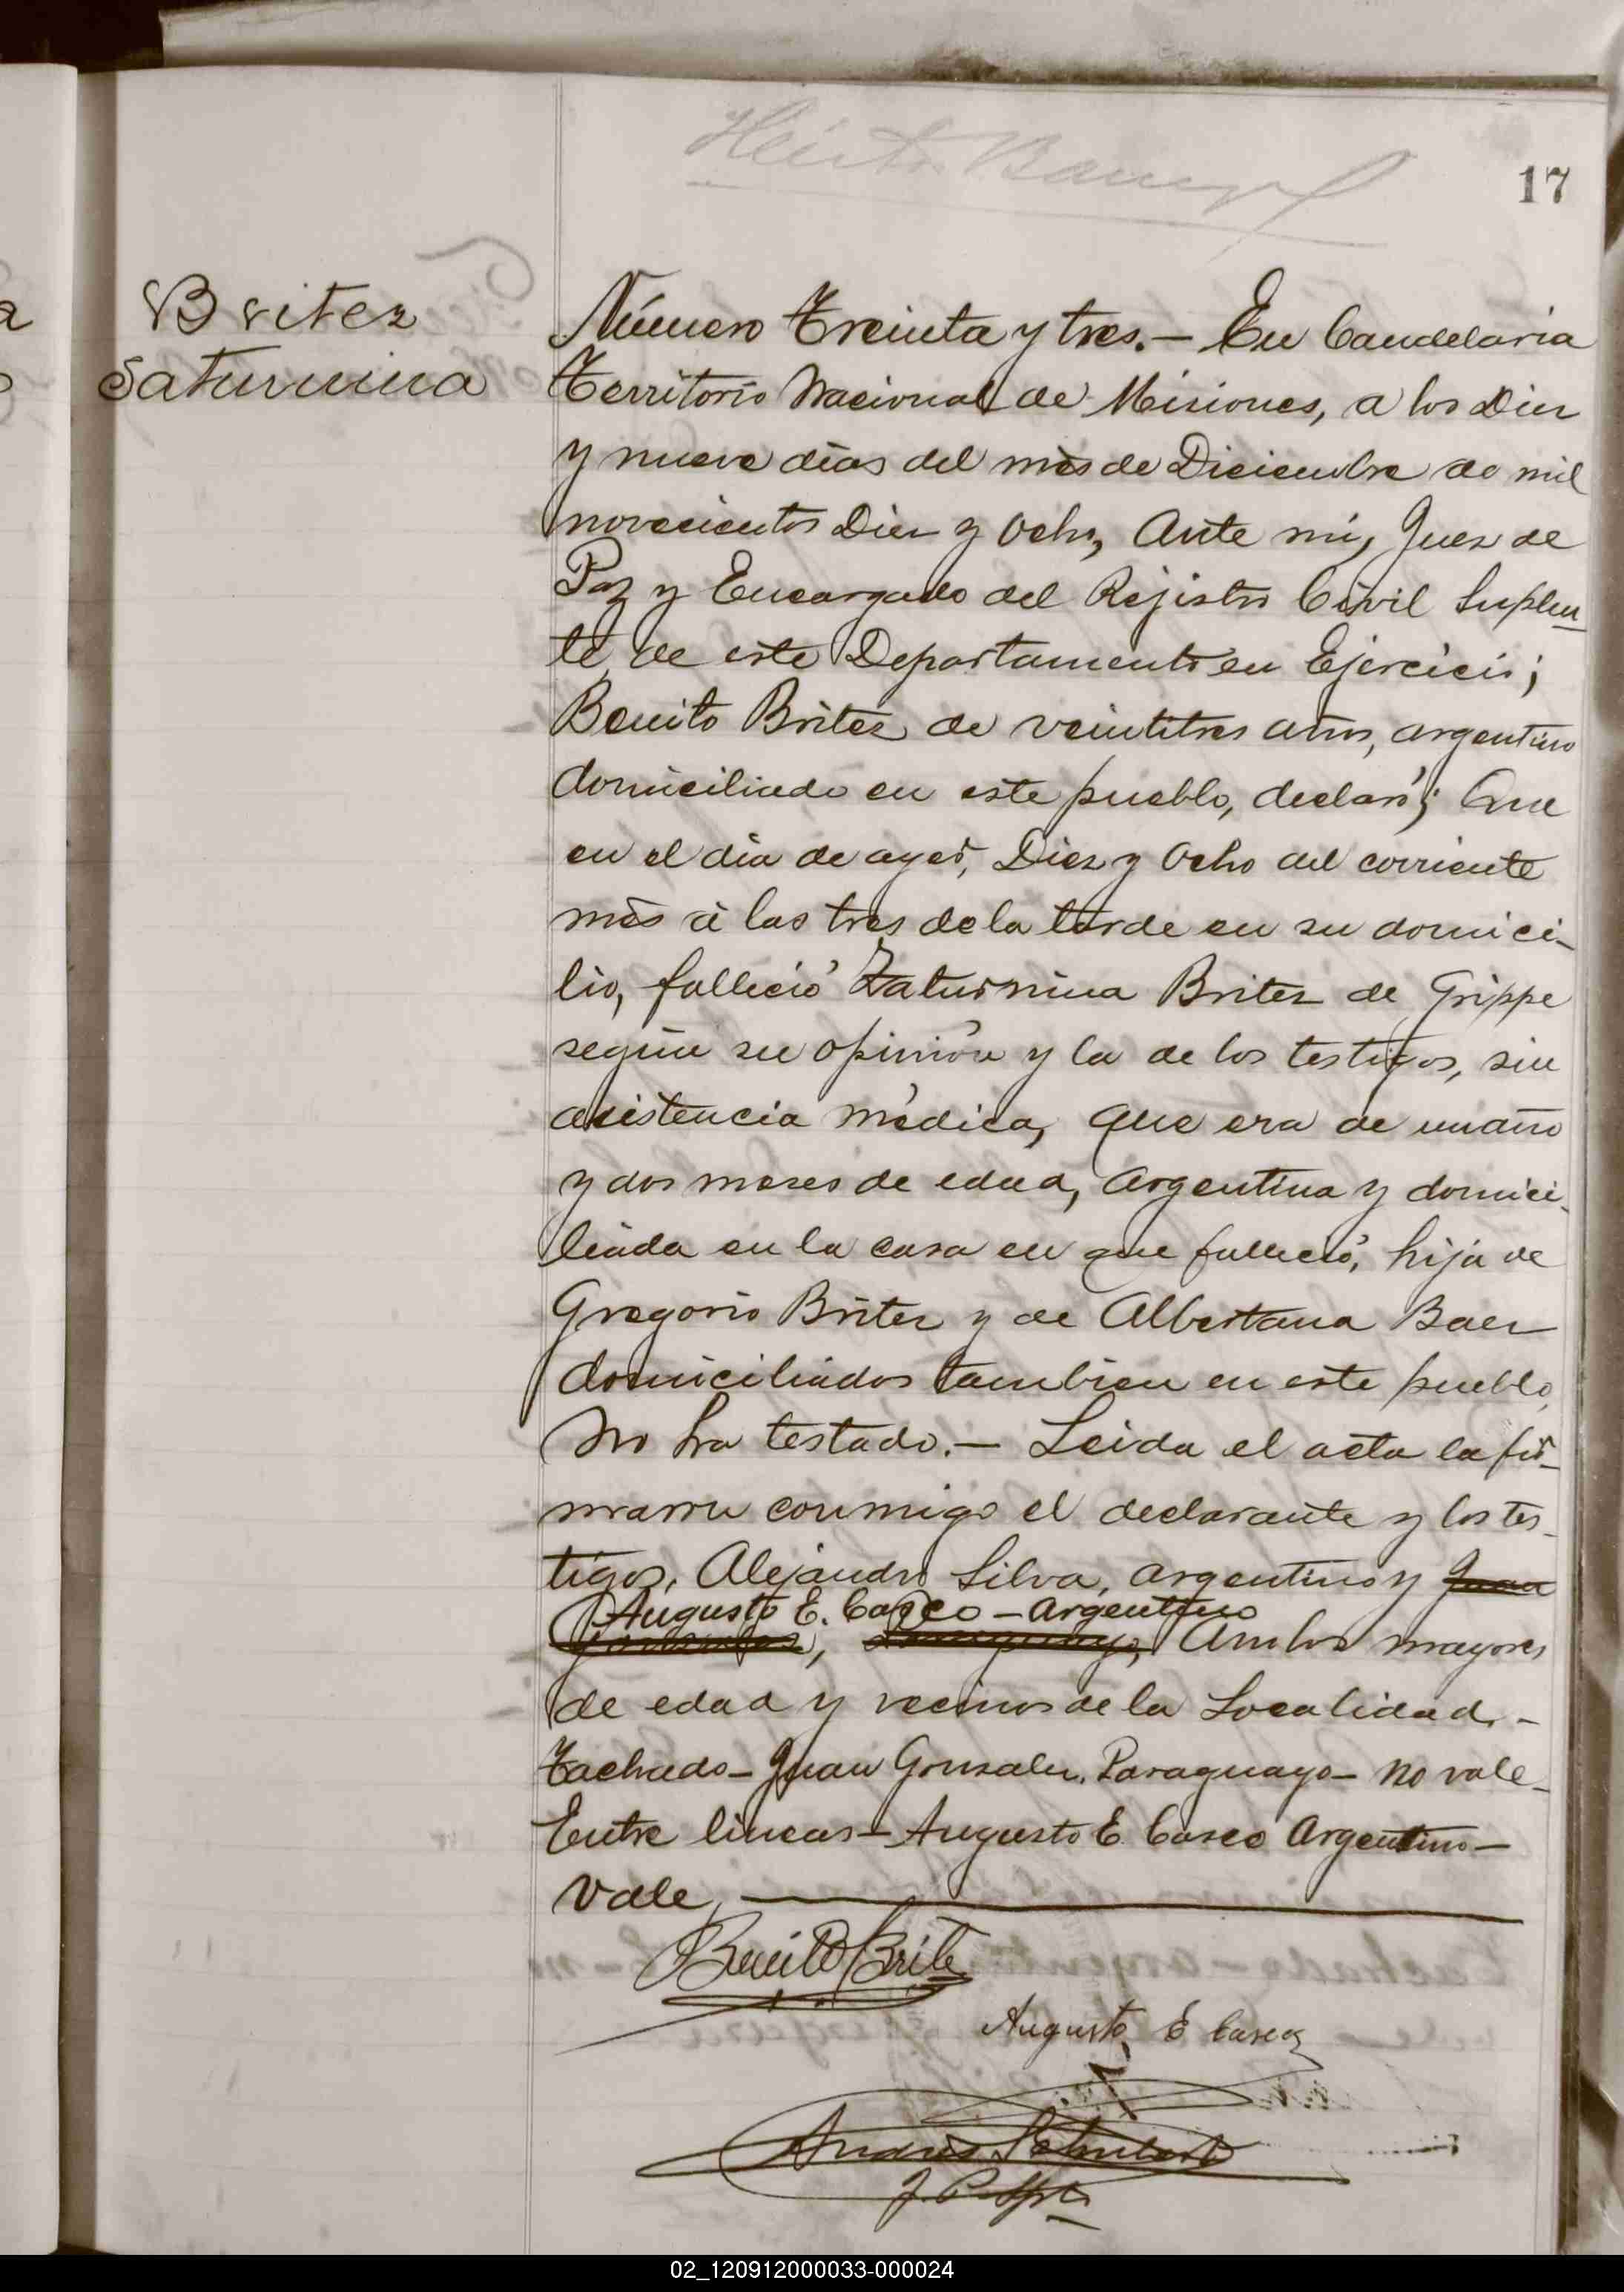 17
Britez
Saturnina
Número Treinta y tres.— En Candelaria
Territorio Nacional de Misiones, a los Diez
y nueve días del mès de Diciembre de mil
novecientos Diez y Ocho, Ante mi, Juez de
Paz y Encargado del Rejistro Civil Suplen-
te, de este Departamento en Ejercicio;
Benito Britez de veintitres años, argentino
domiciliado en este pueblo, declaró; Que
en el día de ayer, Diez y Ocho del corriente
mès à las tres de la tarde en su domici-
lio, falleció Zaturnina Britez de Grippe
según su opinión y la de los testigos, sin
asistencia mèdica, que era de un año
y dos meses de edad, Argentina y domici-
liada en la casa en que falleció, hija de
Gregorio Britez y de Albertana Baez
domiciliados tambien en este pueblo,
No ha testado.— Leida el acta la fir-
maron conmigo el declarante y los tes-
tigos, Alejandro Silva, argentino y Juan
Augusto E. Casco — argentino
Gonzalez, Paraguayo, Ambos mayores
de edad y vecinos de la Localidad.—
Tachado — Juan Gonzalez. Paraguayo — no vale —
Entre lineas — Augusto E. Casco Argentino —
Vale
Benito Brite
Augusto E Casco
J. P. Spte
02_120912000033-000024